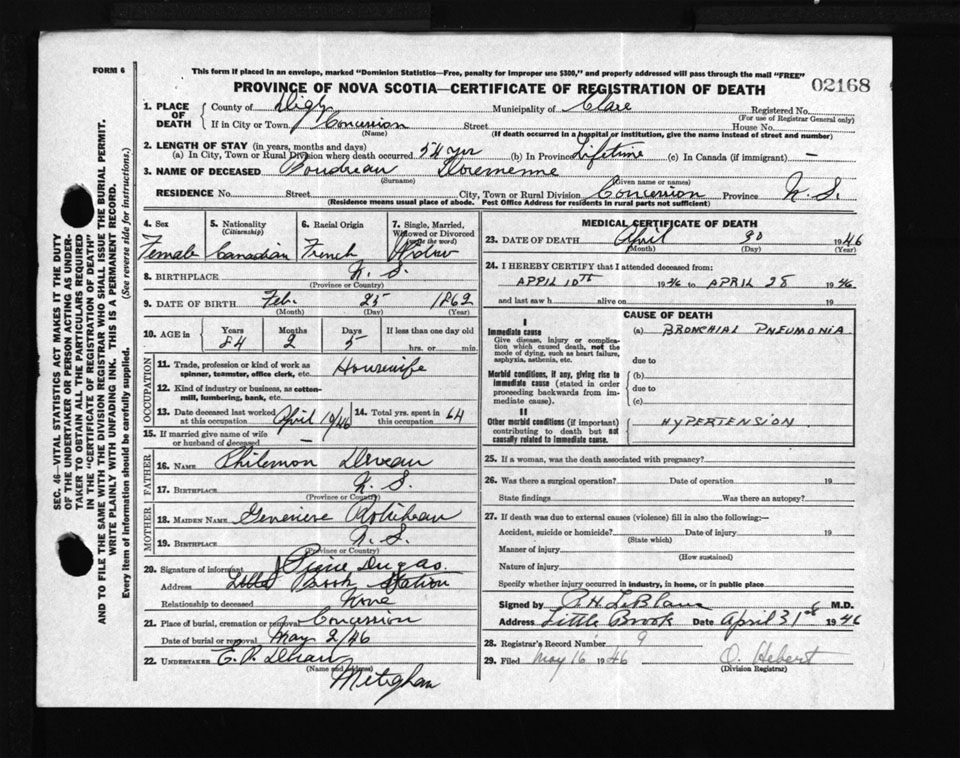 FORM 6
This form if placed in an envelope, marked "Dominion Statistics—Free, penalty for improper use $300," and properly addressed will pass through the mail "FREE"
02168
PROVINCE OF NOVA SCOTIA—CERTIFICATE OF REGISTRATION OF DEATH
1. PLACE OF DEATH { County of Digby Municipality of Clare Registered No.
(For use of Registrar General only)
If in City or Town Concession Street House No.
(Name) (If death occurred in a hospital or institution, give the name instead of street and number)
2. LENGTH OF STAY (in years, months and days)
(a) In City, Town or Rural Division where death occurred 54 yrs (b) In Province Lifetime (c) In Canada (if immigrant) —
3. NAME OF DECEASED Boudreau
(Surname) (Given name or names)
RESIDENCE No. Street City, Town or Rural Division Concession Province N. S.
(Residence means usual place of abode. Post Office Address for residents in rural parts not sufficient)
SEC. 46—VITAL STATISTICS ACT MAKES IT THE DUTY
OF THE UNDERTAKER OR PERSON ACTING AS UNDER-
TAKER TO OBTAIN ALL THE PARTICULARS REQUIRED
IN THE "CERTIFICATE OF REGISTRATION OF DEATH"
AND TO FILE THE SAME WITH THE DIVISION REGISTRAR WHO SHALL ISSUE THE BURIAL PERMIT.
WRITE PLAINLY WITH UNFADING INK. THIS IS A PERMANENT RECORD.
Every item of information should be carefully supplied. (See reverse side for instructions.)
4. Sex 5. Nationality (Citizenship) 6. Racial Origin 7. Single, Married, Widowed or Divorced (write the word)
Female Canadian French Widow
8. BIRTHPLACE N. S.
(Province or Country)
9. DATE OF BIRTH Feb. 25 1862
(Month) (Day) (Year)
10. AGE in Years Months Days If less than one day old
84 2 5 hrs. or min.
OCCUPATION
11. Trade, profession or kind of work as spinner, teamster, office clerk, etc. Housewife
12. Kind of industry or business, as cotton-mill, lumbering, bank, etc.
13. Date deceased last worked at this occupation April 10/46 14. Total yrs. spent in this occupation 64
15. If married give name of wife or husband of deceased —
FATHER
16. NAME Philemon Deveau
17. BIRTHPLACE N. S.
(Province or Country)
MOTHER
18. MAIDEN NAME Genevieve Robicheau
19. BIRTHPLACE N. S.
(Province or Country)
20. Signature of informant Pierre Dugas.
Address Little Brook Station
Relationship to deceased None
21. Place of burial, cremation or removal Concession
Date of burial or removal May 2/46
22. UNDERTAKER E.
(Name and address)
Meteghan
MEDICAL CERTIFICATE OF DEATH
23. DATE OF DEATH April 30 1946
(Month) (Day) (Year)
24. I HEREBY CERTIFY that I attended deceased from:
APRIL 10TH 1946 to APRIL 28 1946
and last saw h alive on 19
CAUSE OF DEATH
I
Immediate cause (a) BRONCHIAL PNEUMONIA
Give disease, injury or complica-
tion which caused death, not the
mode of dying, such as heart failure,
asphyxia, asthenia, etc. due to
Morbid conditions, if any, giving rise to (b)
immediate cause (stated in order due to
proceeding backwards from im-
mediate cause). (c)
II
Other morbid conditions (if important) HYPERTENSION
contributing to death but not
causally related to immediate cause.
25. If a woman, was the death associated with pregnancy?
26. Was there a surgical operation? Date of operation 19
State findings Was there an autopsy?
27. If death was due to external causes (violence) fill in also the following:—
Accident, suicide or homicide? Date of injury 19
(State which)
Manner of injury
(How sustained)
Nature of injury
Specify whether injury occurred in industry, in home, or in public place
Signed by P. H. LeBlanc M.D.
Address Little Brook Date April 31st 1946
28. Registrar's Record Number 9
29. Filed May 16 1946 O. Hebert
(Division Registrar)